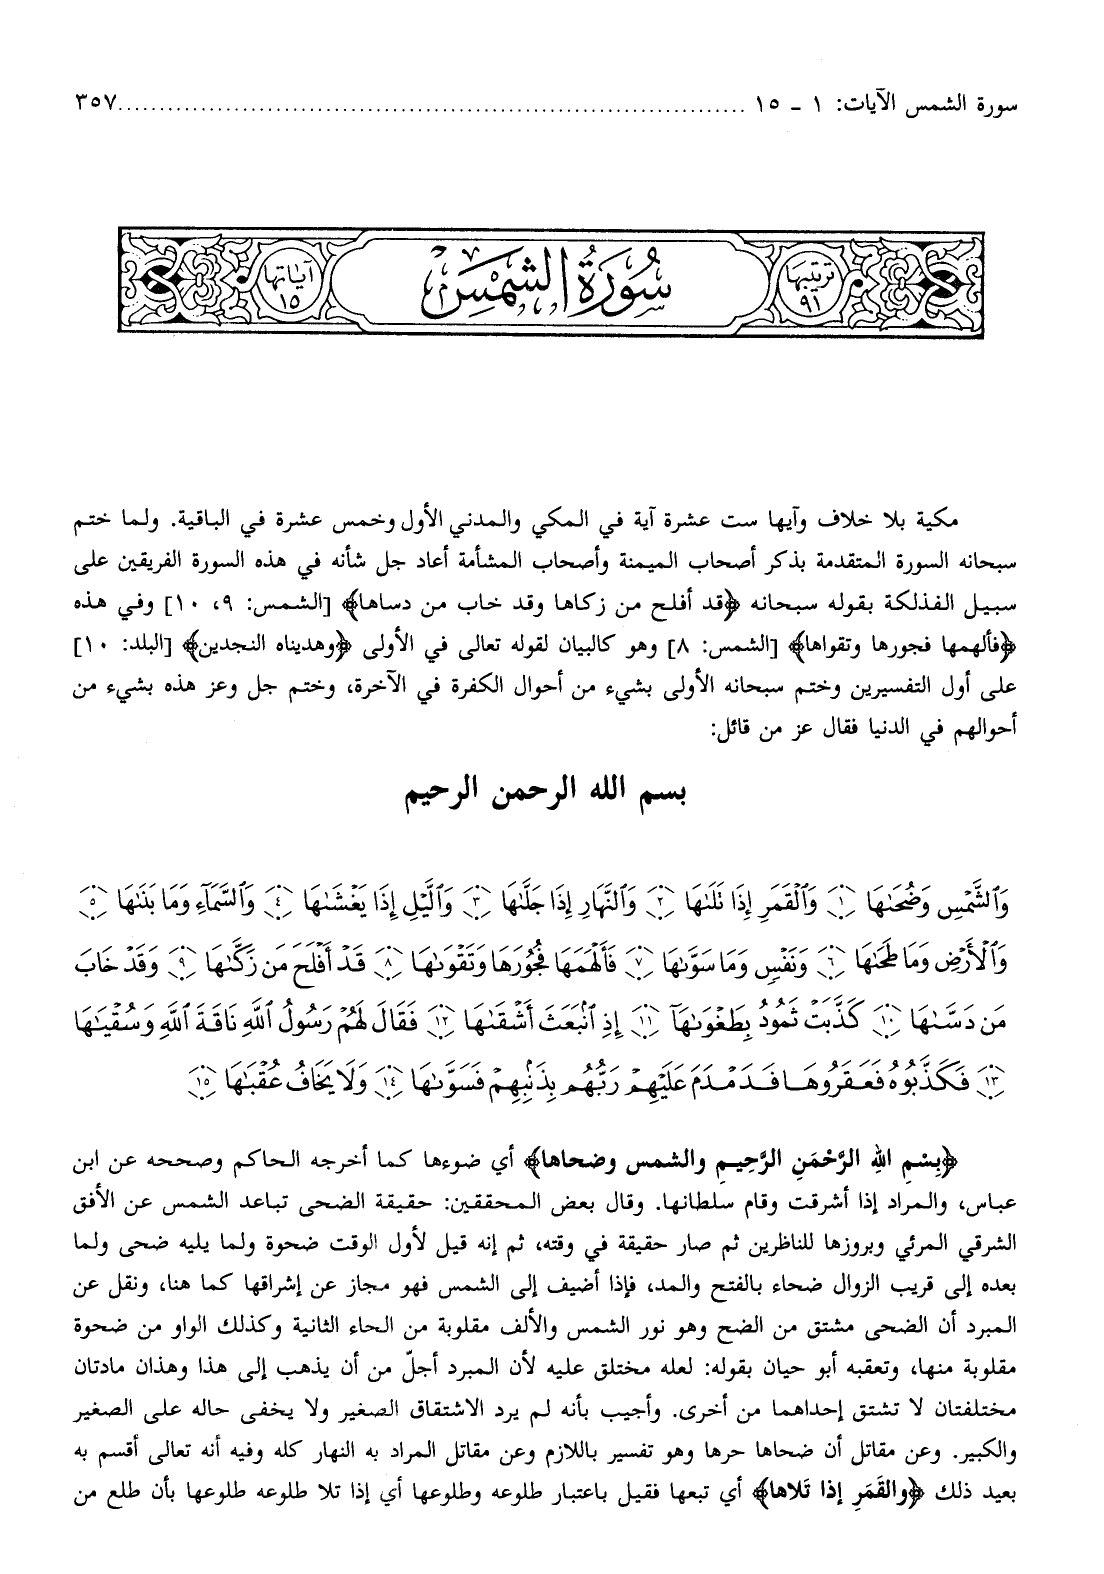 سورة الشمس الآيات: ١ - ١٥ ............................................................ ٣٥٧
ترتيبها ٩١ سُورَةُ الشَّمْسِ آياتها ١٥
مكية بلا خلاف وآيها ست عشرة آية في المكي والمدني الأول وخمس عشرة في الباقية. ولما ختم
سبحانه السورة المتقدمة بذكر أصحاب الميمنة وأصحاب المشأمة أعاد جل شأنه في هذه السورة الفريقين على
سبيل الفذلكة بقوله سبحانه ﴿قد أفلح من زكاها وقد خاب من دساها﴾ [الشمس: ٩، ١٠] وفي هذه
﴿فألهمها فجورها وتقواها﴾ [الشمس: ٨] وهو كالبيان لقوله تعالى في الأولى ﴿وهديناه النجدين﴾ [البلد: ١٠]
على أول التفسيرين وختم سبحانه الأولى بشيء من أحوال الكفرة في الآخرة، وختم جل وعز هذه بشيء من
أحوالهم في الدنيا فقال عز من قائل:
بسم الله الرحمن الرحيم
وَٱلشَّمْسِ وَضُحَىٰهَا ١ وَٱلْقَمَرِ إِذَا تَلَىٰهَا ٢ وَٱلنَّهَارِ إِذَا جَلَّىٰهَا ٣ وَٱلَّيْلِ إِذَا يَغْشَىٰهَا ٤ وَٱلسَّمَآءِ وَمَا بَنَىٰهَا ٥
وَٱلْأَرْضِ وَمَا طَحَىٰهَا ٦ وَنَفْسٍ وَمَا سَوَّىٰهَا ٧ فَأَلْهَمَهَا فُجُورَهَا وَتَقْوَىٰهَا ٨ قَدْ أَفْلَحَ مَن زَكَّىٰهَا ٩ وَقَدْ خَابَ
مَن دَسَّىٰهَا ١٠ كَذَّبَتْ ثَمُودُ بِطَغْوَىٰهَآ ١١ إِذِ ٱنۢبَعَثَ أَشْقَىٰهَا ١٢ فَقَالَ لَهُمْ رَسُولُ ٱللَّهِ نَاقَةَ ٱللَّهِ وَسُقْيَىٰهَا
١٣ فَكَذَّبُوهُ فَعَقَرُوهَا فَدَمْدَمَ عَلَيْهِمْ رَبُّهُم بِذَنۢبِهِمْ فَسَوَّىٰهَا ١٤ وَلَا يَخَافُ عُقْبَىٰهَا ١٥
﴿بِسْمِ اللهِ الرَّحْمَنِ الرَّحِيمِ والشمس وضحاها﴾ أي ضوءها كما أخرجه الحاكم وصححه عن ابن
عباس، والمراد إذا أشرقت وقام سلطانها. وقال بعض المحققين: حقيقة الضحى تباعد الشمس عن الأفق
الشرقي المرئي وبروزها للناظرين ثم صار حقيقة في وقته، ثم إنه قيل لأول الوقت ضحوة ولما يليه ضحى ولما
بعده إلى قريب الزوال ضحاء بالفتح والمد، فإذا أضيف إلى الشمس فهو مجاز عن إشراقها كما هنا، ونقل عن
المبرد أن الضحى مشتق من الضح وهو نور الشمس والألف مقلوبة من الحاء الثانية وكذلك الواو من ضحوة
مقلوبة منها، وتعقبه أبو حيان بقوله: لعله مختلق عليه لأن المبرد أجلّ من أن يذهب إلى هذا وهذان مادتان
مختلفتان لا تشتق إحداهما من أخرى. وأجيب بأنه لم يرد الاشتقاق الصغير ولا يخفى حاله على الصغير
والكبير. وعن مقاتل أن ضحاها حرها وهو تفسير باللازم وعن مقاتل المراد به النهار كله وفيه أنه تعالى أقسم به
بعيد ذلك ﴿والقَمَرِ إذا تَلاها﴾ أي تبعها فقيل باعتبار طلوعه وطلوعها أي إذا تلا طلوعه طلوعها بأن طلع من